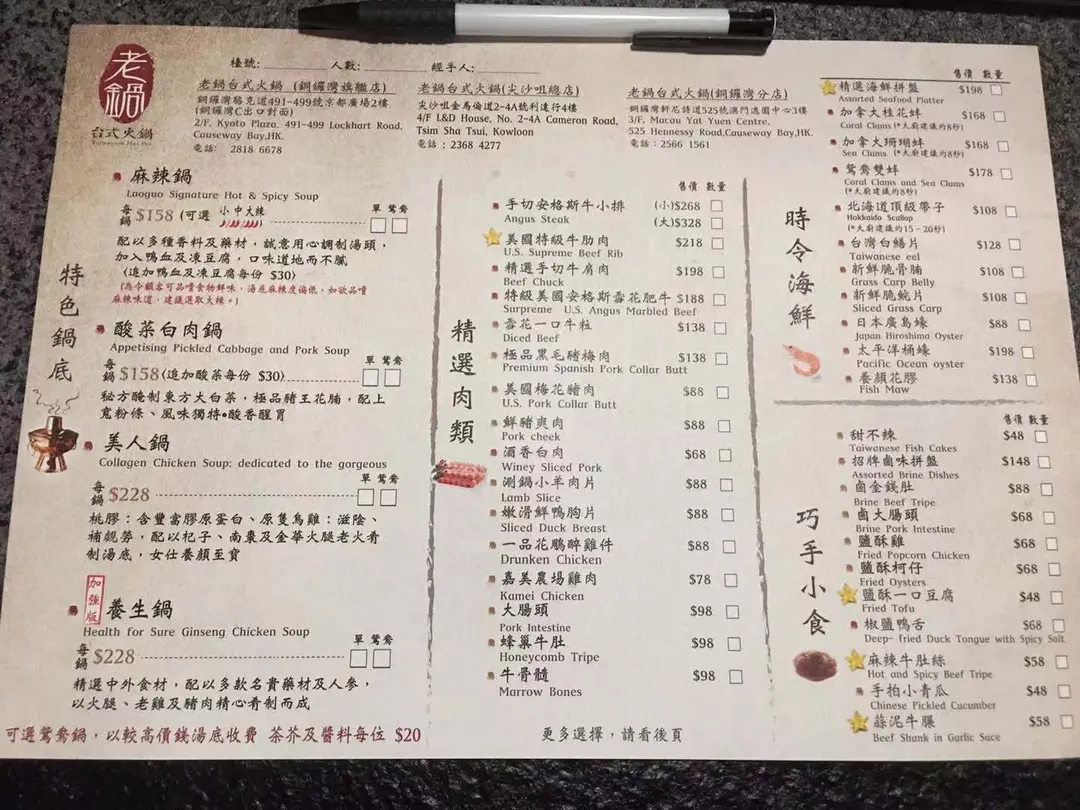 老鍋
台式火鍋
Taiwanese Hot Pot
檯號: 人數: 經手人:
老鍋台式火鍋 (銅鑼灣旗艦店)
銅鑼灣駱克道491-499號京都廣場2樓
(銅鑼灣C出口對面)
2/F, Kyoto Plaza, 491-499 Lockhart Road,
Causeway Bay,HK.
電話: 2818 6678
老鍋台式火鍋(尖沙咀總店)
尖沙咀金馬倫道2-4A號利達行4樓
4/F L&D House, No. 2-4A Cameron Road,
Tsim Sha Tsui, Kowloon
電話 : 2368 4277
老鍋台式火鍋(銅鑼灣分店)
銅鑼灣軒尼詩道525號澳門逸園中心3樓
3/F, Macau Yat Yuen Centre,
525 Hennessy Road,Causeway Bay,HK.
電話 : 2566 1561
特色鍋底
麻辣鍋
Laoguo Signature Hot & Spicy Soup
單 鴛鴦
每鍋 $158 (可選 小 中 大辣
配以多種香料及藥材，誠意用心調制湯頭，
加入鴨血及凍豆腐，口味道地而不膩
(追加鴨血及凍豆腐每份 $30)
(為令顧客可品嚐食物鮮味，湯底麻辣度偏低，如欲品嚐
麻辣味道，建議選取大辣。)
酸菜白肉鍋
Appetising Pickled Cabbage and Pork Soup
單 鴛鴦
每鍋 $158(追加酸菜每份 $30)
秘方醃制東方大白菜，極品豬王花腩，配上
寬粉條、風味獨特•酸香醒胃
美人鍋
Collagen Chicken Soup: dedicated to the gorgeous
單 鴛鴦
每鍋 $228
桃膠：含豐富膠原蛋白、原隻烏雞：滋陰、
補親勞，配以杞子、南棗及金華火腿老火肴
制湯底，女仕養顏至寶
加強版
養生鍋
Health for Sure Ginseng Chicken Soup
單 鴛鴦
每鍋 $228
精選中外食材，配以多款名貴藥材及人參，
以火腿、老雞及豬肉精心肴制而成
可選鴛鴦鍋，以較高價錢湯底收費 茶芥及醬料每位 $20
精選肉類
售價 數量
手切安格斯牛小排 (小)$268
Angus Steak (大)$328
美國特級牛肋肉 $218
U.S. Supreme Beef Rib
精選手切牛肩肉 $198
Beef Chuck
特級美國安格斯雪花肥牛 $188
Surpreme U.S. Angus Marbled Beef
雪花一口牛粒 $138
Diced Beef
極品黑毛豬梅肉 $138
Premium Spanish Pork Collar Butt
美國梅花豬肉 $88
U.S. Pork Collar Butt
鮮豬爽肉 $88
Pork cheek
酒香白肉 $68
Winey Sliced Pork
涮鍋小羊肉片 $88
Lamb Slice
嫩滑鮮鴨胸片 $88
Sliced Duck Breast
一品花鵰醉雞件 $88
Drunken Chicken
嘉美農場雞肉 $78
Kamei Chicken
大腸頭 $98
Pork Intestine
蜂巢牛肚 $98
Honeycomb Tripe
牛骨髓 $98
Marrow Bones
更多選擇，請看後頁
時令海鮮
售價 數量
精選海鮮拼盤 $198
Assorted Seafood Platter
加拿大桂花蚌 $168
Coral Clams (*大廚建議約8秒)
加拿大珊瑚蚌 $168
Sea Clams (*大廚建議約8秒)
鴛鴦雙蚌 $178
Coral Clams and Sea Clams
(*大廚建議約8秒)
北海道頂級帶子 $108
Hokkaido Scallop
(*大廚建議約15-20秒)
台灣白鱔片 $128
Taiwanese eel
新鮮脆骨腩 $108
Grass Carp Belly
新鮮脆鯇片 $108
Sliced Grass Carp
日本廣島蠔 $88
Japan Hiroshima Oyster
太平洋桶蠔 $198
Pacific Ocean oyster
養顏花膠 $138
Fish Maw
巧手小食
售價 數量
甜不辣 $48
Taiwanese Fish Cakes
招牌鹵味拼盤 $148
Assorted Brine Dishes
鹵金錢肚 $88
Brine Beef Tripe
鹵大腸頭 $68
Brine Pork Intestine
鹽酥雞 $68
Fried Popcorn Chicken
鹽酥柯仔 $68
Fried Oysters
鹽酥一口豆腐 $48
Fried Tofu
椒鹽鴨舌 $68
Deep- fried Duck Tongue with Spicy Salt
麻辣牛肚絲 $58
Hot and Spicy Beef Tripe
手拍小青瓜 $48
Chinese Pickled Cucumber
蒜泥牛𦟌 $58
Beef Shank in Garlic Suce